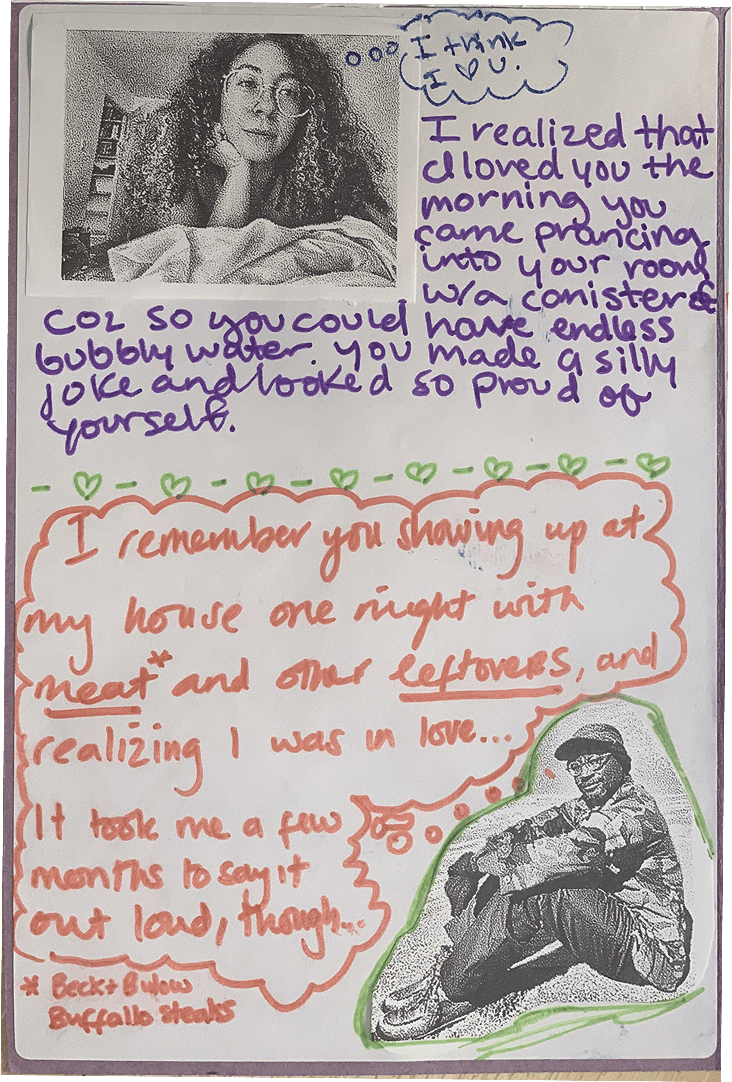 I think
I ♡ U.
I realized that
I loved you the
morning you
came prancing
into your room
w/a conister of
CO2 so you could have endless
bubbly water. you made a silly
joke and looked so proud of
yourself.
I remember you showing up at
my house one night with
meat* and other leftovers, and
realizing I was in love...
It took me a few
months to say it
out loud, though...
* Beck + Bulow
Buffallo steaks